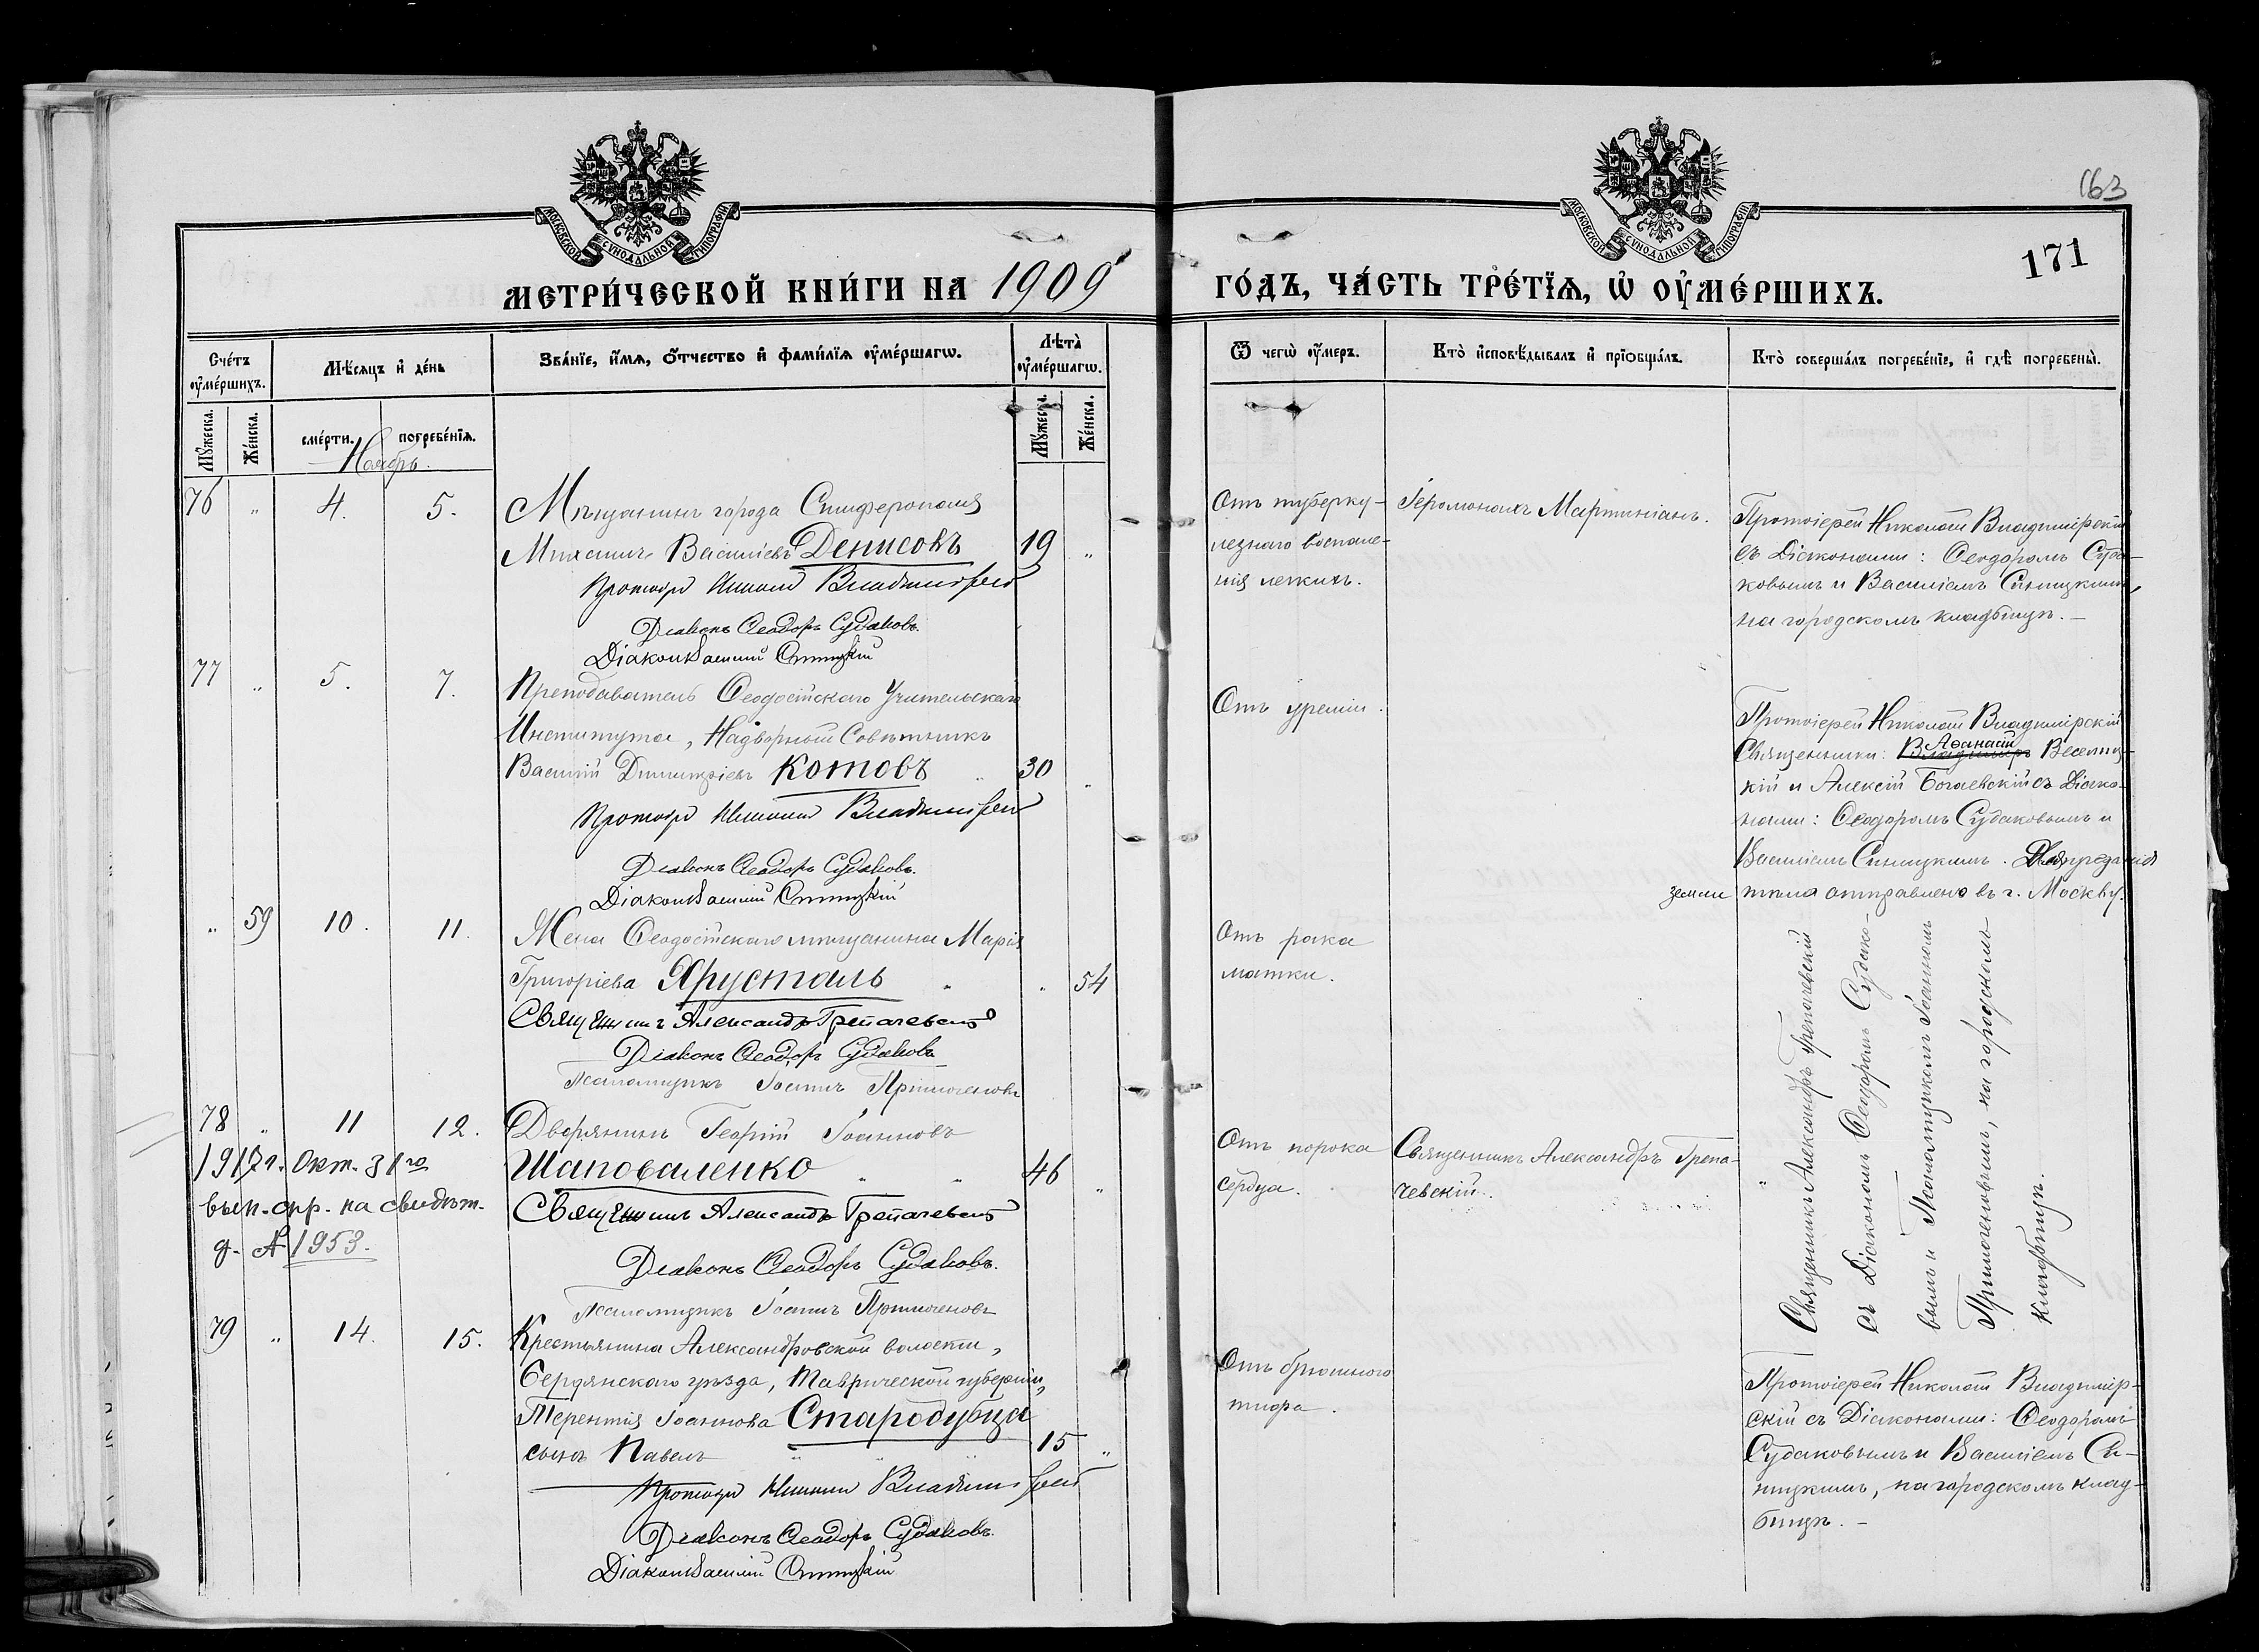 163
171
МОСКОВСКОЙ СѴНОДАЛЬНОЙ ТИПОГРАФІИ
МОСКОВСКОЙ СѴНОДАЛЬНОЙ ТИПОГРАФІИ
МЕТРИ́ЧЕСКОЙ КНИ́ГИ НА 1909
ГО́ДЪ, ЧА́СТЬ ТРЕ́ТЇѦ, Ѡ҆ ОУ҆МЕ́РШИХЪ.
Сче́тъ оу҆ме́ршихъ.
Мѣ́сѧцъ и҆ де́нь
Зва́нїе, и҆́мѧ, ѻ҆́тчество и҆ фами́лїѧ оу҆ме́ршагѡ.
Лѣ́та оу҆ме́ршагѡ.
Ѿ чегѡ̀ оу҆́меръ.
Кто̀ и҆сповѣ́дывалъ и҆ прїѻбща́лъ.
Кто̀ соверша́лъ погребе́нїе, и҆ гдѣ̀ погребены̀.
Мꙋ́жеска.
Же́нска.
сме́рти.
погребе́нїѧ.
Мꙋ́жеска.
Же́нска.
Ноябрь.
76 „ 4. 5. Мѣщанинъ города Симферополя
Михаилъ Василіевъ Денисовъ 19 „
Протоіерей Николай Владимірскій
Діаконъ Ѳеодоръ Судаковъ.
Діаконъ Василій Синицкій
Отъ туберку-
лезнаго воспале-
нія легкихъ.
Іеромонахъ Мартиніанъ.
Протоіерей Николай Владимірскій
съ Діаконами: Ѳеодоромъ Суда-
ковымъ и Василіемъ Синицкимъ,
на городскомъ кладбищѣ. –
77 „ 5. 7. Преподаватель Ѳеодосійскаго Учительскаго
Института, Надворный Совѣтникъ
Василій Димитріевъ Котовъ „ 30 „
Протоіерей Николай Владимірскій
Діаконъ Ѳеодоръ Судаковъ.
Діаконъ Василій Синицкій
Отъ уреміи.
Протоіерей Николай Владимірскій
Священники: Владиміръ Аѳанасій Веселиц-
кій и Алексій Богаевскій съ Діако-
нами: Ѳеодоромъ Судаковымъ и
Василіемъ Синицкимъ. Для преданія
земли тѣло отправлено въ г. Москву.
„ 59 10. 11. Жена Ѳеодосійскаго мѣщанина Марія
Григоріева Хрусталь „ „ 54
Священникъ Александръ Трепачевскій
Діаконъ Ѳеодоръ Судаковъ
Псаломщикъ Іоаннъ Примоченовъ
Отъ рака
матки.
Священникъ Александръ Трепачевскій
съ Діакономъ Ѳеодоромъ Судако-
вымъ и Псаломщикомъ Іоанномъ
Примоченовымъ, на городскомъ
кладбищѣ.
78 „ 11 12. Дворянинъ Георгій Іоанновъ
Шаповаленко „ „ 46 „
Священникъ Александръ Трепачевскій
Діаконъ Ѳеодоръ Судаковъ.
Псаломщикъ Іоаннъ Примоченовъ
1917 г. Окт. 31 го
вып. спр. на свидѣт.
д. № 1953.
Отъ порока
сердца.
Священникъ Александръ Трепа-
чевскій.
„
79 „ 14. 15. Крестьянина Александровской волости,
Бердянскаго уѣзда, Таврической губерніи,
Терентія Іоаннова Стародубца
сынъ Павелъ „ „ 15 „
Протоіерей Николай Владимірскій
Діаконъ Ѳеодоръ Судаковъ.
Діаконъ Василій Синицкій
Отъ брюшного
тифа.
Протоіерей Николай Владимір-
скій съ Діаконами: Ѳеодоромъ
Судаковымъ и Василіемъ Си-
ницкимъ, на городскомъ клад-
бищѣ. –